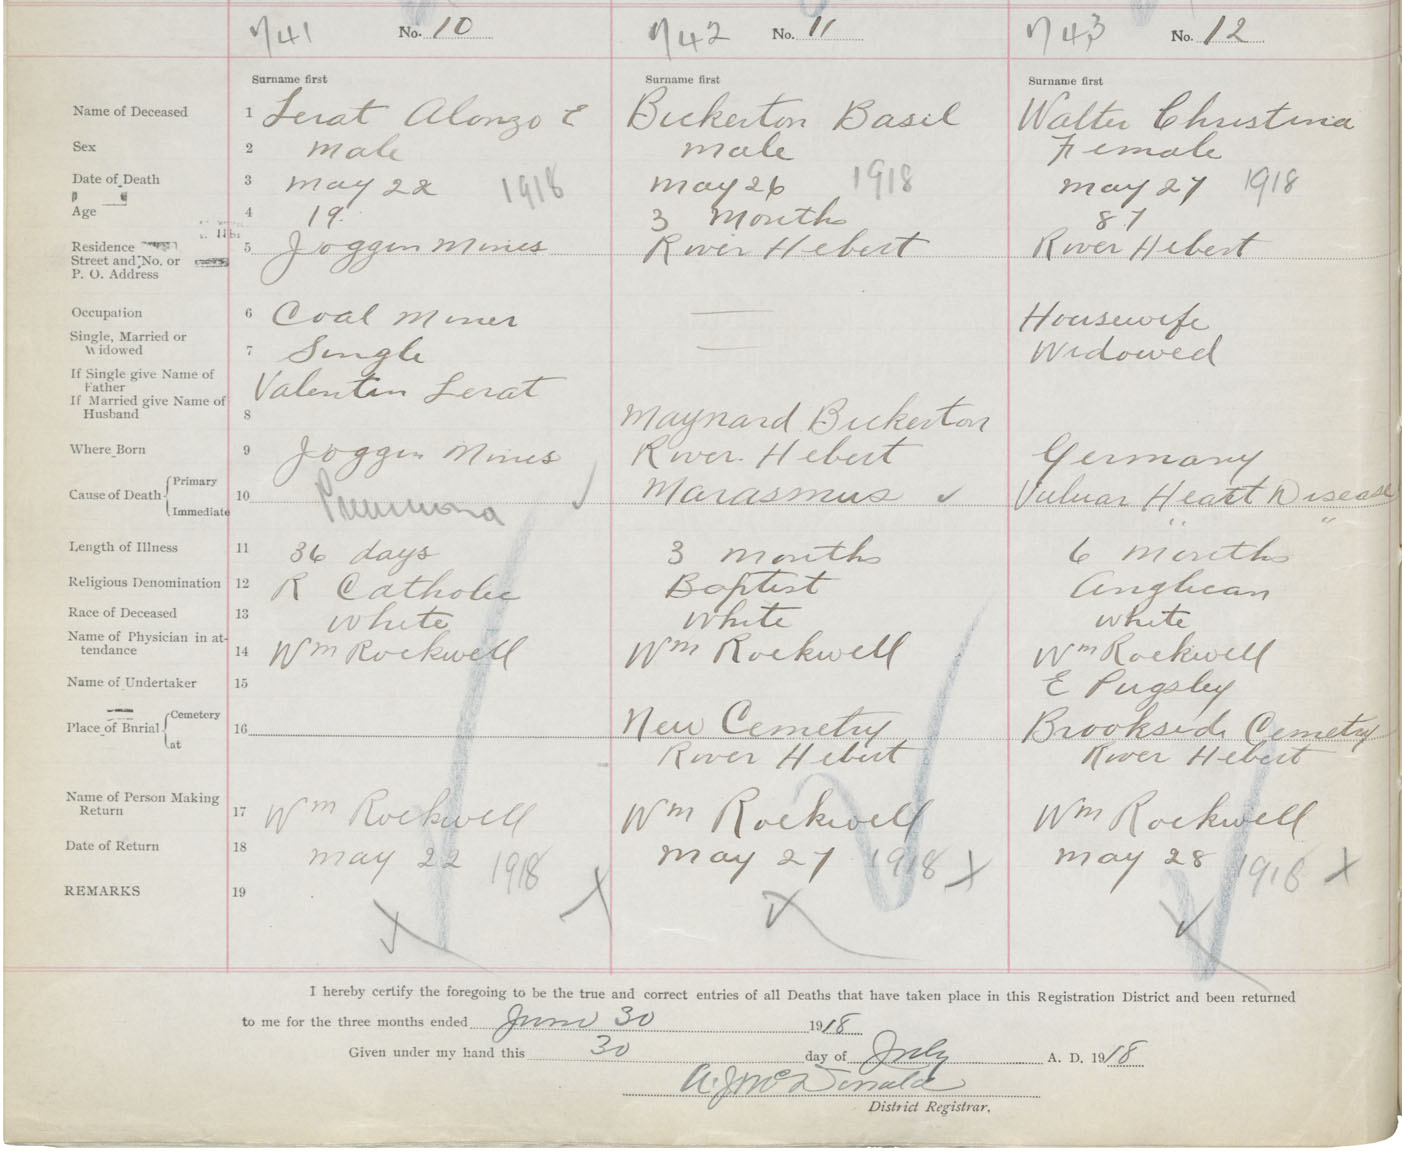 741 No. 10 742 No. 11 743 No. 12
Surname first Surname first Surname first
Name of Deceased 1 Lerat Alonzo E Bickerton Basil Walter Christina
Sex 2 male male Female
Date of Death 3 May 22 1918 May 26 1918 May 27 1918
Age 4 19 3 Months 87
Residence 5 Joggin Mines River Hebert River Hebert
Street and No. or
P. O. Address
Occupation 6 Coal Miner — Housewife
Single, Married or
Widowed 7 Single — Widowed
If Single give Name of
Father Valentin Lerat
If Married give Name of
Husband 8 Maynard Bickerton
Where Born 9 Joggin Mines River Hebert Germany
Cause of Death Primary
10 Pneumonia Marasmus Vulvar Heart Disease
Immediate " "
Length of Illness 11 36 days 3 months 6 months
Religious Denomination 12 R Catholic Baptist Anglican
Race of Deceased 13 White White White
Name of Physician in at-
tendance 14 Wm Rockwell Wm Rockwell Wm Rockwell
Name of Undertaker 15 E Pugsley
Place of Burial Cemetery 16 New Cemetry Brookside Cemetry
at River Hebert River Hebert
Name of Person Making
Return 17 Wm Rockwell Wm Rockwell Wm Rockwell
Date of Return 18 May 22 1918 May 27 1918 May 28 1918
REMARKS 19
I hereby certify the foregoing to be the true and correct entries of all Deaths that have taken place in this Registration District and been returned
to me for the three months ended June 30 1918
Given under my hand this 30 day of July A. D. 1918
A. J. McDonald
District Registrar.